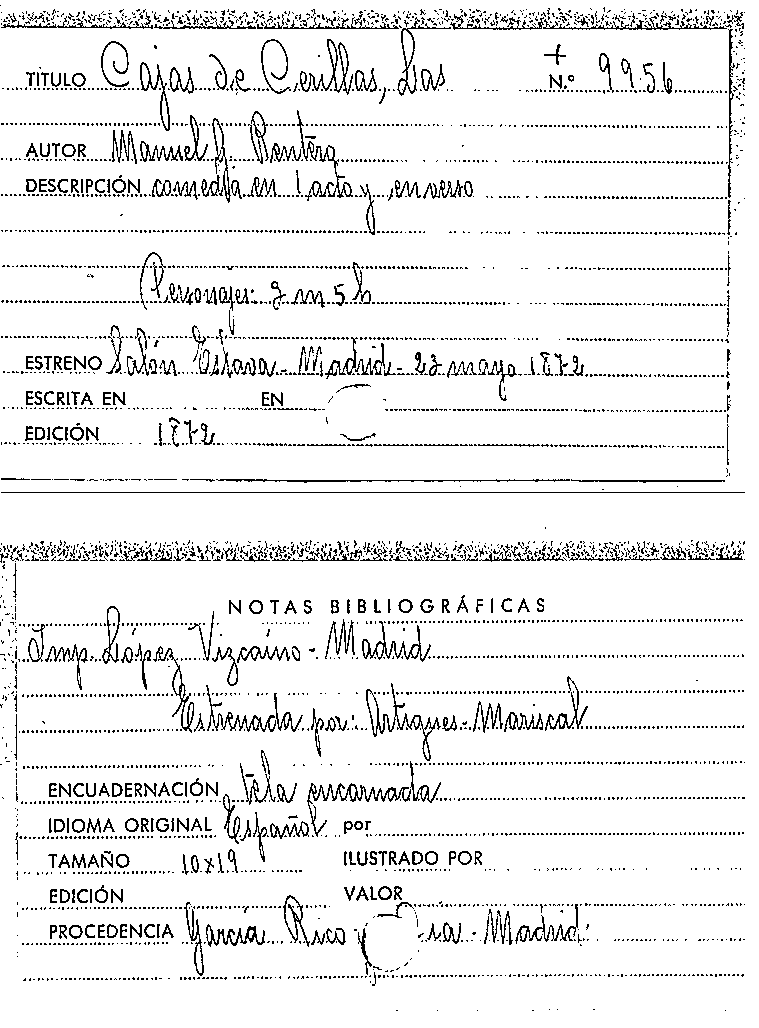 TÍTULO Cajas de Cerillas, Las + N.º 9956
AUTOR Manuel G. Rentero
DESCRIPCIÓN comedia en 1 acto y en verso
Personajes: 2 m 5 h
ESTRENO Salón Eslava - Madrid - 22 mayo 1872
ESCRITA EN EN
EDICIÓN 1872
NOTAS BIBLIOGRÁFICAS
Imp. López Vizcaíno - Madrid
Estrenada por: Artigues - Mariscal
ENCUADERNACIÓN tela encarnada
IDIOMA ORIGINAL Español por
TAMAÑO 10x19 ILUSTRADO POR
EDICIÓN VALOR
PROCEDENCIA García Rico y - Madrid